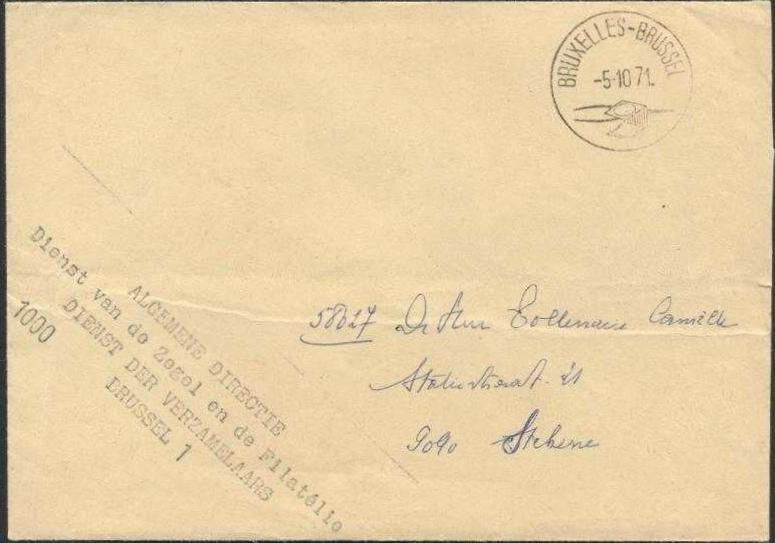 BRUXELLES-BRUSSEL
-5-10 71.
ALGEMENE DIRECTIE
Dienst van de Zegel en de Filatélie
DIENST DER VERZAMELAARS
1000 BRUSSEL 1
58627 De Heer Collenaire Camille
Statiestraat 21
9090 Stekene